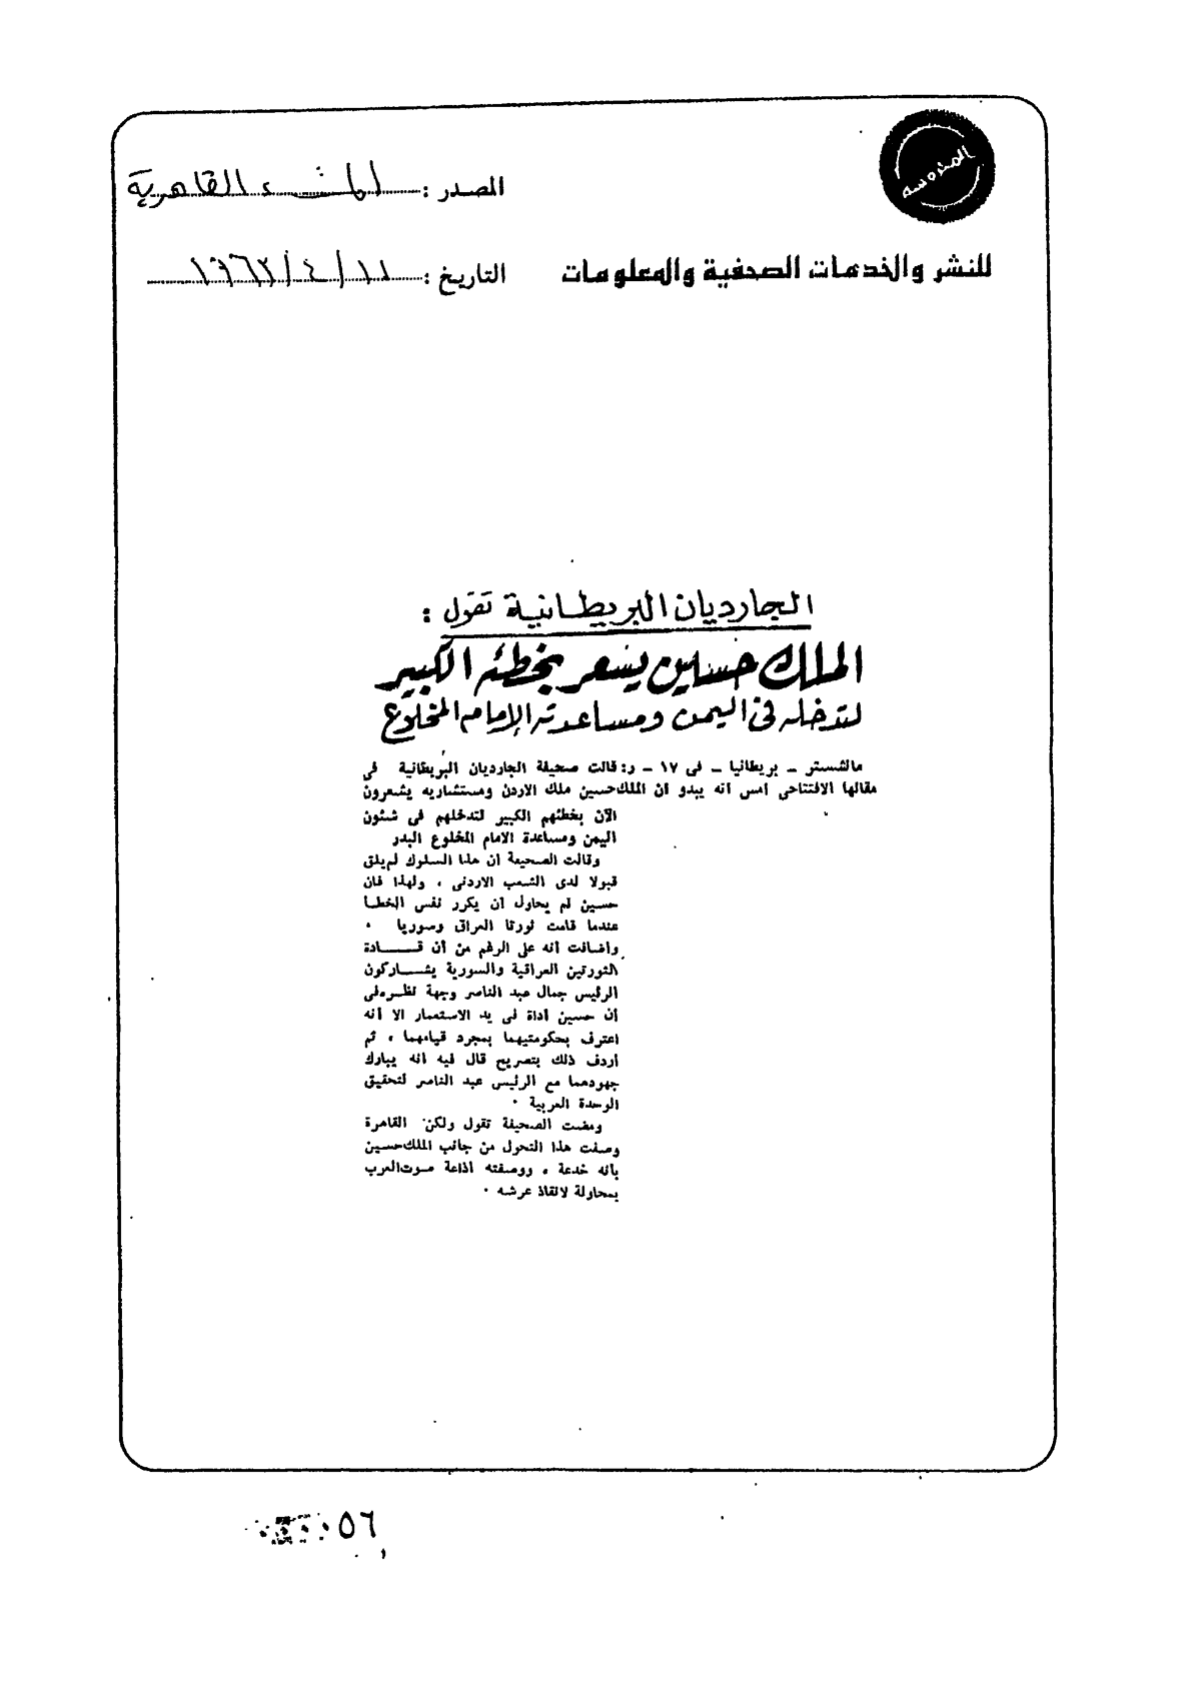 المحروسة
المصدر : المساء القاهرية
للنشر والخدمات الصحفية والمعلومات
التاريخ : ١٨ / ٤ / ١٩٦٣
الجارديان البريطانية تقول :
الملك حسين يشعر بخطئه الكبير
لتدخله فى اليمن ومساعدته الإمام المخلوع
مانشستر ـ بريطانيا ـ فى ١٧ ـ ر: قالت صحيفة الجارديان البريطانية فى
مقالها الافتتاحى امس انه يبدو ان الملك حسين ملك الاردن ومستشاريه يشعرون
الآن بخطئهم الكبير لتدخلهم فى شئون
اليمن ومساعدة الامام المخلوع البدر
وقالت الصحيفة ان هذا السلوك لم يلق
قبولا لدى الشعب الاردنى ، ولهذا فان
حسين لم يحاول ان يكرر نفس الخطـا
عندما قامت ثورتا العراق وسوريا .
واضافت انه على الرغم من أن قـــــادة
الثورتين العراقية والسورية يشـــاركون
الرئيس جمال عبد الناصر وجهة نظـره فى
أن حسين أداة فى يد الاستعمار الا أنه
اعترف بحكومتيهما بمجرد قيامهما ، ثم
أردف ذلك بتصريح قال فيه انه يبارك
جهودهما مع الرئيس عبد الناصر لتحقيق
الوحدة العربية .
ومضت الصحيفة تقول ولكن القاهرة
وصفت هذا التحول من جانب الملك حسين
بأنه خدعة ، ووصفته اذاعة صوت العرب
بمحاولة لانقاذ عرشه .
٥٦